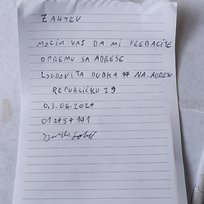 ZAHTEV
MOLIM VAS DA MI PREBACITE
OPREMU SA ADRESE
LJUDOVITA DUBKA 17 NA ADRESU
REPUBLIČKU 29
03.06.2021